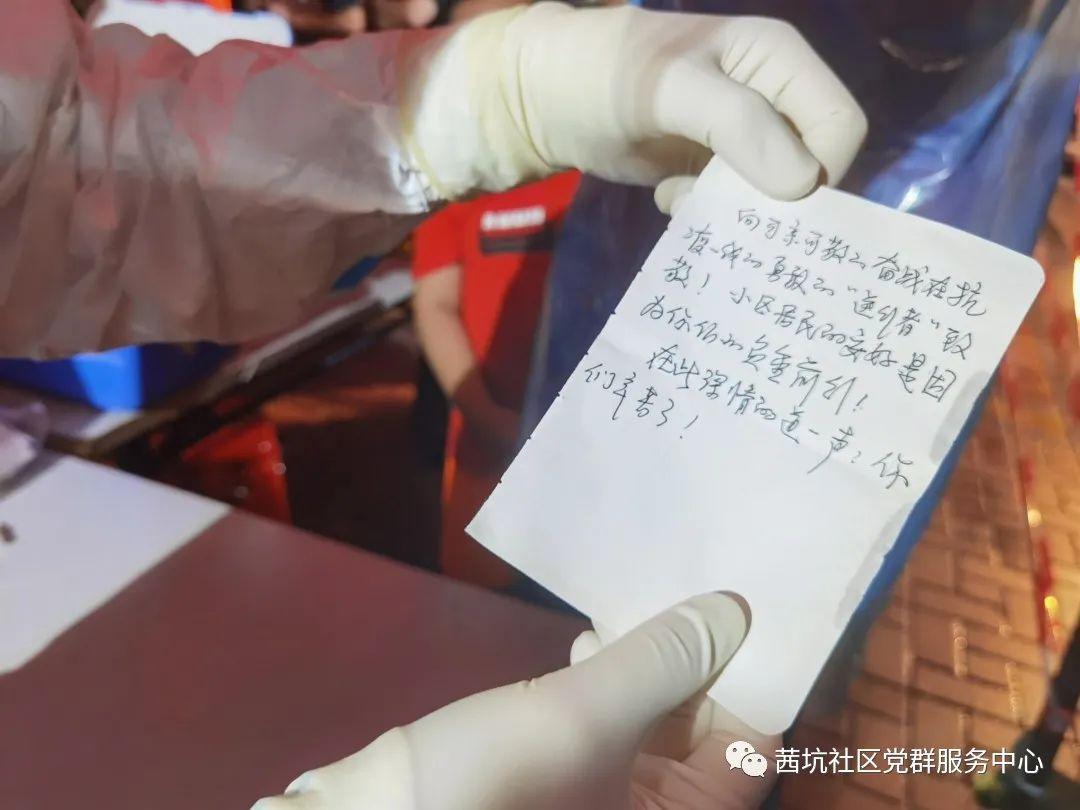 向可亲可敬的奋战在抗
疫一线的勇敢的“逆行者”致
敬！小区居民的安好是因
为你们的负重前行！
在此深情的道一声：你
们辛苦了！
茜坑社区党群服务中心